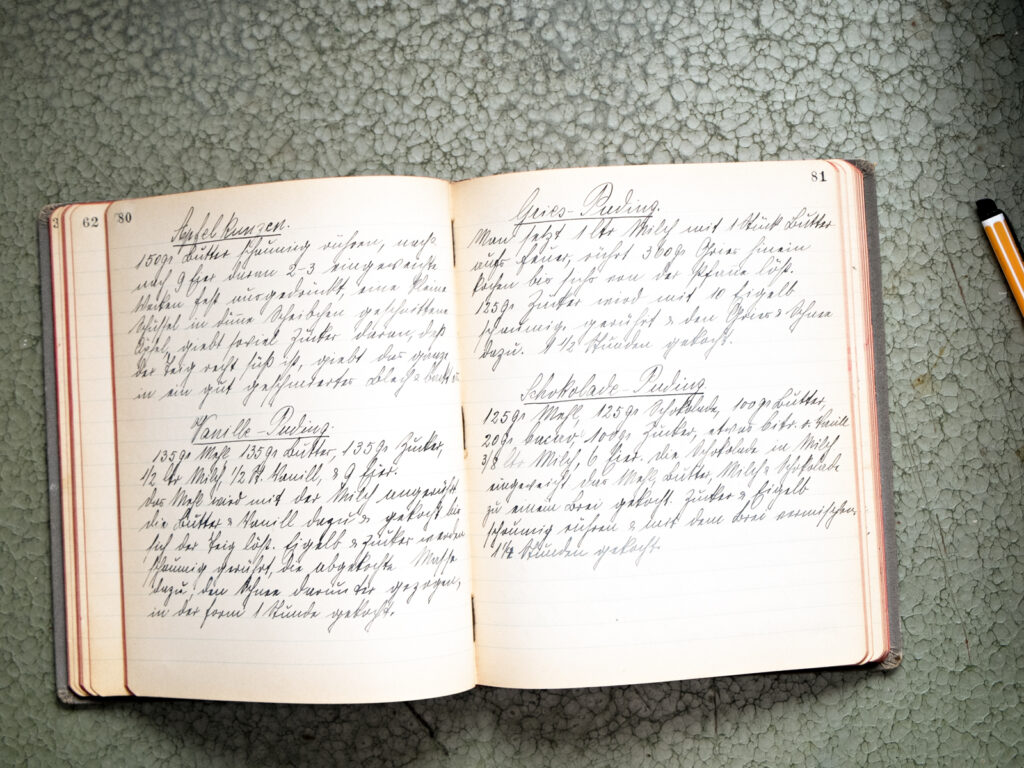 62
80
Apfel
150gr Butter schaumig rühren, nach
nach 9 Eyer daran 2-3 eingeweichte
Wecken fest ausgedrückt, eine kleine
Schüssel in dünne Scheibchen geschnittene
Äpfel, giebt soviel Zucker daran, daß
der Teig recht süß ist, giebt das ganze
in ein gut geschmiertes Blech &
Vanille-Puding.
135gr Mehl 135gr Butter, 135gr Zucker,
1/2 ltr Milch 1/2 St. Vanill, & 9 Eier.
Das Mehl wird mit der Milch angerührt
die Butter & Vanill dazu & gekocht bis
sich der Teig löst. Eigelb & Zucker werden
schaumig gerührt, die abgekochte Masse
dazu, den Schnee darunter gezogen,
in der Form 1 Stunde gekocht.
81
Gries-Puding.
Man setzt 1 ltr Milch mit 1 Stück Butter
aufs Feuer, rührt 360gr Gries hinein
kochen bis sichs von der Pfanne löst.
125gr Zucker wird mit 10 Eigelb
schaumig gerührt & den Gries & Schnee
dazu. 1 1/2 Stunden gekocht.
Schokolade-Puding
125gr Mehl, 125gr Schokolade, 100gr Butter,
20gr 100gr Zucker, etwas Citr. & Vanill
3/8 ltr Milch, 6 Eier. die Schokolade in Milch
eingeweicht das Mehl, Butter, Milch & Schokolade
zu einem Brei gekocht Zucker & Eigelb
schaumig rühren & mit dem Brei vermischen
Stunden gekocht